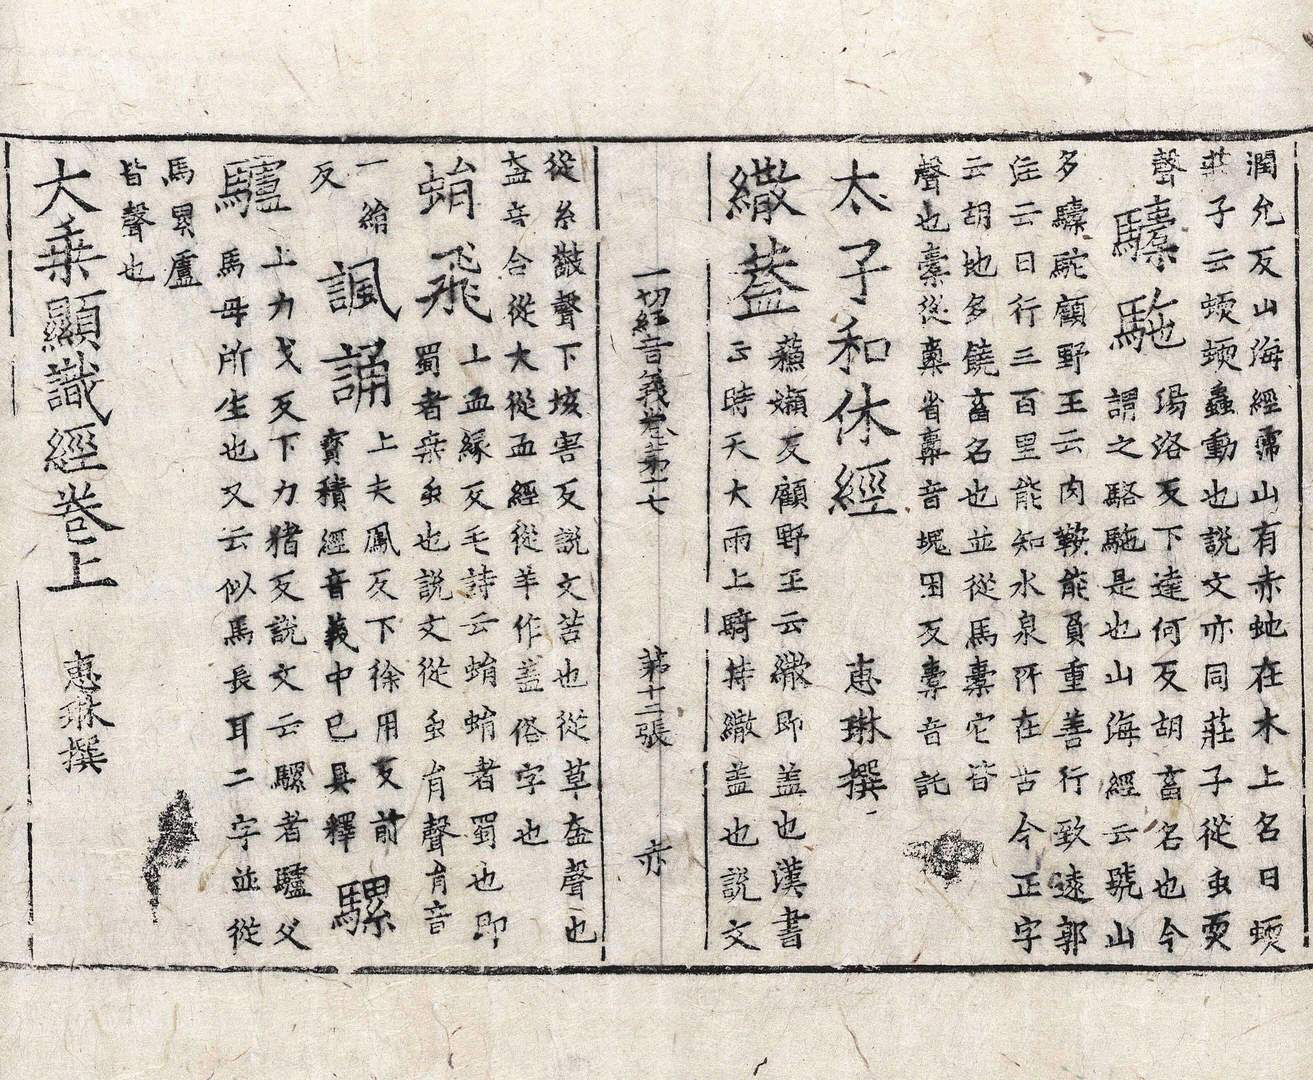 潤允反山海經霈山有赤虵在木上名曰蝡
莊子云蝡蝡蠢動也說文亦同莊子從虫耎
聲
驝駞
瑒洛反下達何反胡畜名也今
謂之駱駞是也山海經云號山
多驝駝顧野王云肉鞍能負重善行致遠郭
注云日行三百里能知水泉所在古今正字
云胡地多饒畜名也並從馬橐它皆
聲也橐從㯻省㯻音塊困反橐音託
太子和休經　惠琳撰
繖蓋
蘓嬾反顧野王云繖即盖也漢書
云時天大雨上騎持繖盖也說文
一切經音義卷第十七　第十二張　亦
從糸㪔聲下垓害反說文苫也從草盍聲也
盍音合從大從血經從羊作盖俗字也
蜎飛
上血緣反毛詩云蜎蜎者蜀也即
蜀者桒虫也說文從虫肙聲肙音
一緣
反
諷誦
上夫鳳反下徐用反前
寶積經音義中已具釋
騾
驢
上力戈反下力猪反說文云騾者驢父
馬母所生也又云似馬長耳二字並從
馬累盧
皆聲也
大乗顯識經卷上　惠琳撰